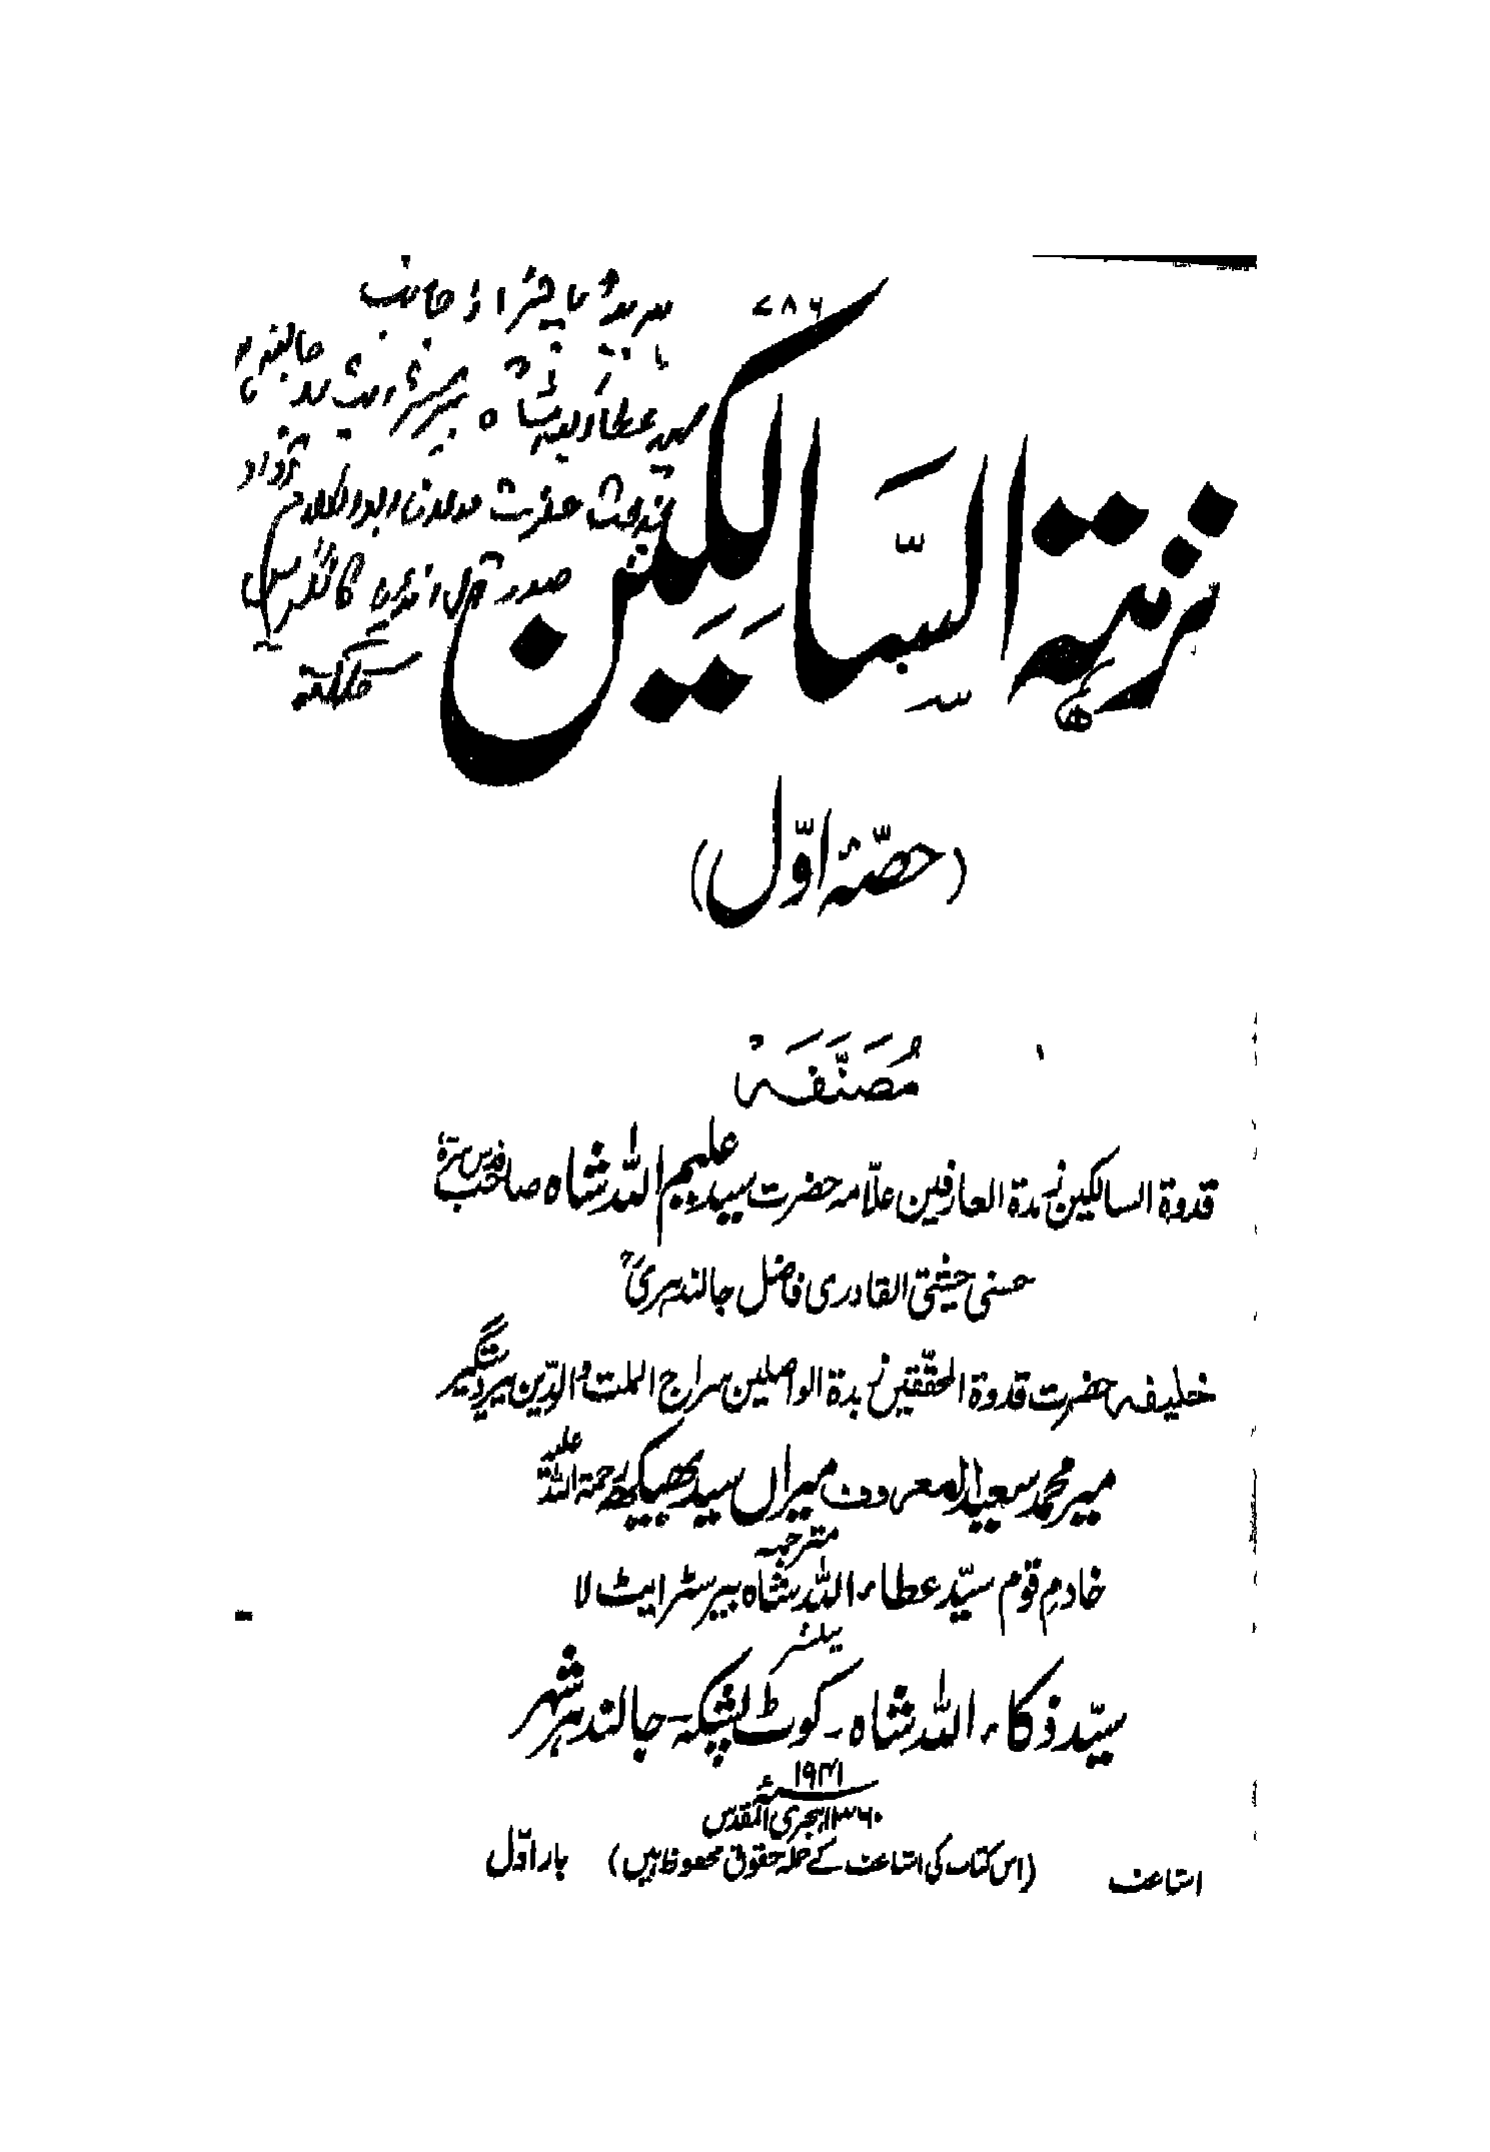 ۷۸۶
ہدیۂ ناچیز از جانب
سید عطاء اللہ شاہ بیرسٹر ایٹ لا جالندھر
بخدمت حضرت مولانا ابو الکلام آزاد
صدر آل انڈیا کانگریس
کلکتہ
نزہتہ السَّالِکِین
(حصّۂ اوّل)
مُصَنَّفَہ
قدوۃ السالکین زبدۃ العارفین علّامہ حضرت سید علیم اللہ شاہ صاحب قدس سرہٗ
حسنی چشتی القادری فاضل جالندہریؒ
خلیفہ حضرت قدوۃ المحققین زبدۃ الواصلین سراج الملت والدّین میر دستگیر
میر محمد سعید المعروف میراں سید بھیکھ رحمۃ اللہ علیہ
مترجمہ
خادمِ قوم سیّد عطاء اللہ شاہ بیرسٹر ایٹ لا
پبلشر
سیّد ذکاء اللہ شاہ۔ کوٹ پشکہ۔ جالندہر شہر
۱۹۴۱ء
۱۳۶۰ ہجری المقدس
اشاعت (اس کتاب کی اشاعت کے جملہ حقوق محفوظ ہیں) بار اوّل